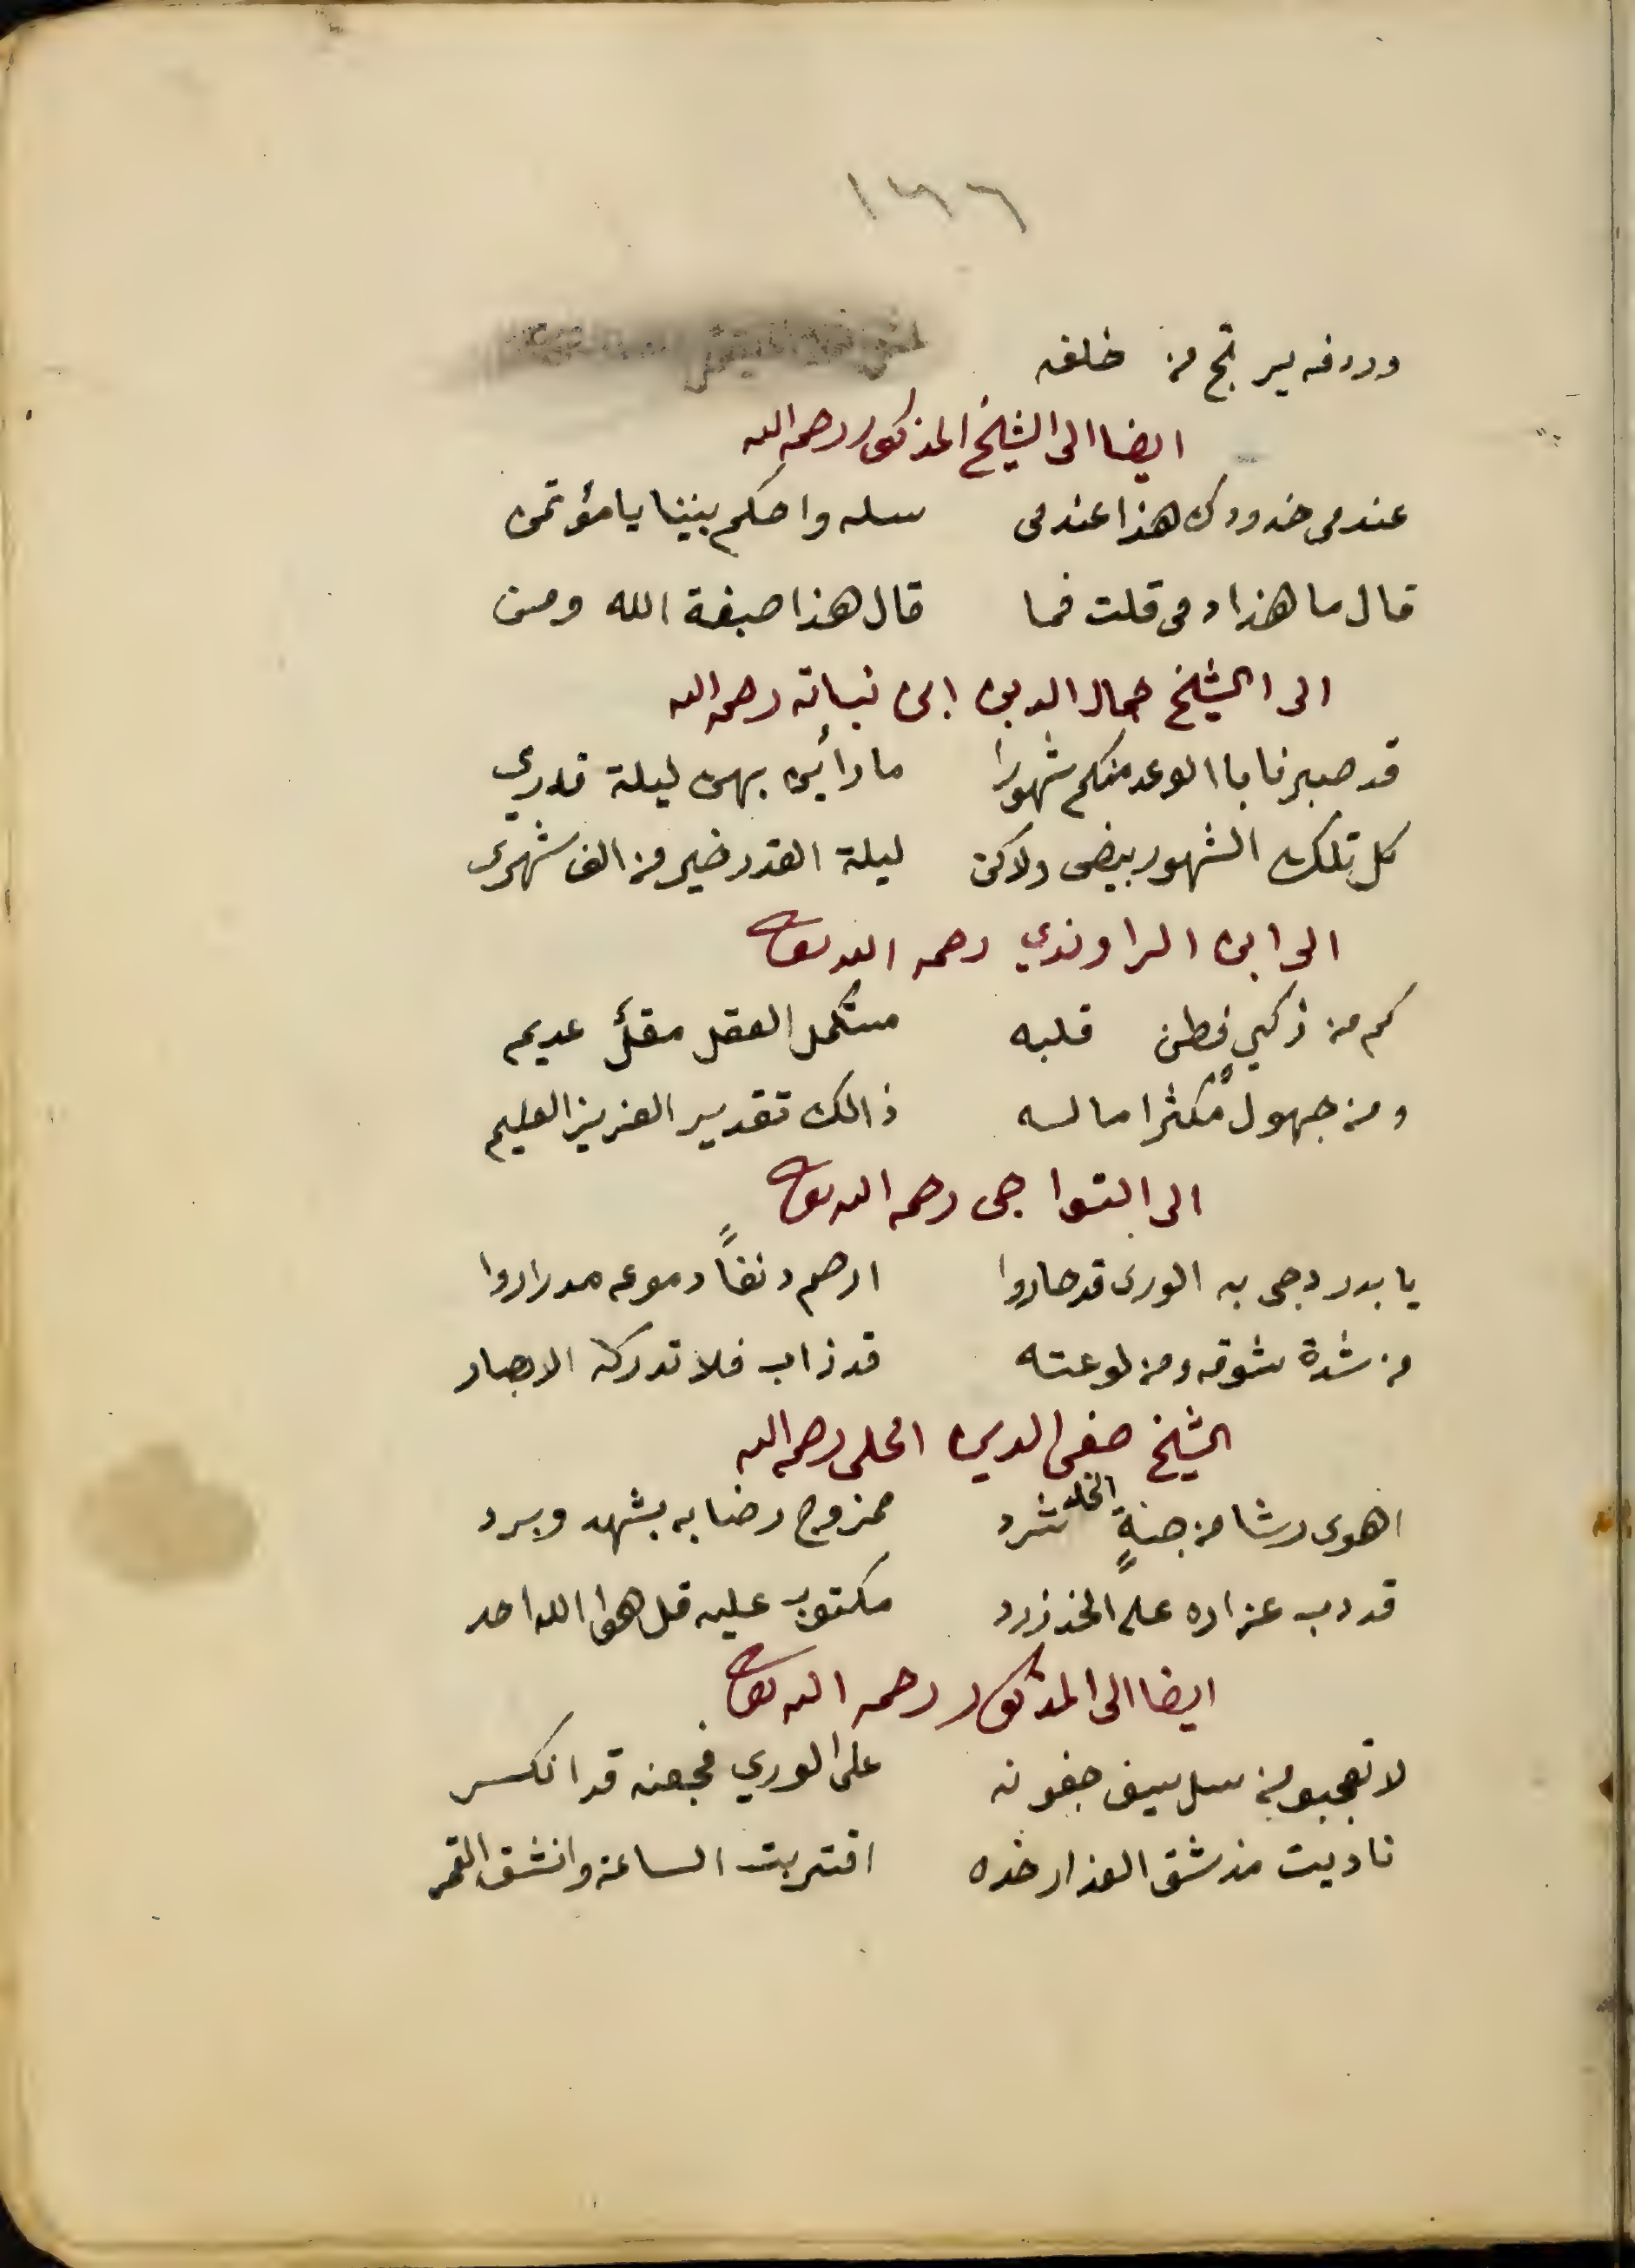 ١٢٦
وردفه يرتج من خلفه
ايضا الى الشيخ المذكور رحمه الله
عندمى خدودك هذا عندمى سله واحكم بيننا يا مؤتمن
قال ما هذا دمى قلت فما قال هذا صبغة الله ومن
الى الشيخ جمال الدين ابن نباته رحمه الله
قد صبرنا باالوعد منكم شهورا ما رأين بهن ليلة قدري
كل تلك الشهور بيض ولاكن ليلة القدر خير من الف شهرى
الى ابن الراوندي رحمه الله تعالى
كم من ذكي فطن قلبه مستكمل العقل مقل عديم
ومن جهول مكثرا ماله ذالك تقدير العزيز العليم
الى النواجى رحمه الله تعالى
يا بدر دجى به الورى قد حاروا ارحم دنفاً دموعه مدراروا
من شدة شوقه ومن لوعته قد ذاب فلا تدركه الابصار
الشيخ صفى الدين الحلى رحمه الله
اهوى رشا من جنةٍ الخلد شرد ممزوج رضابه بشهد وبرد
قد دب عزاره على الخد زرد مكتوب عليه قل هوا الله احد
ايضا الى المذكور رحمه الله تعالى
لا تعجبو من سل سيف جفونه على الوري فجفنه قد انكسر
ناديت مذ شق العذار خده اقتربت الساعة وانشق القمر